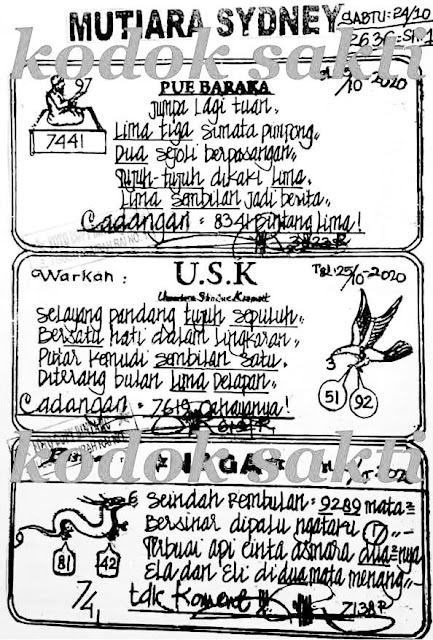 MUTIARA SYDNEY
SABTU: 24/10
2636
kodok sakti
/10-2020
PUE BARAKA
97
7441
Jumpa lagi tuan,
Lima tiga simata pimpong,,
Dua sejoli berpasangan,,
Tujuh-tujuh dikaki lima.
Lima sembilan jadi berita,,
Cadangan = 8341 Bintang lima!
Warkah :
U.S.K
Tgl: 25/10-2020
Selayang pandang tujuh sepuluh,,
Bersatu hati dalam lingkaran,,
Putar kemudi sembilan satu,
Diterang bulan lima delapan,,
Cadangan = 7619 Cahayanya!
3
51
92
kodok sakti
NAGA
81
42
7/4
Seindah Rembulan = 9289 mata=
Bersinar dipalu ngataku 7
Terbuai api cinta asmara dua=nya
Ela dan Eli di dua mata menang,,
tdk Koment
7138 R